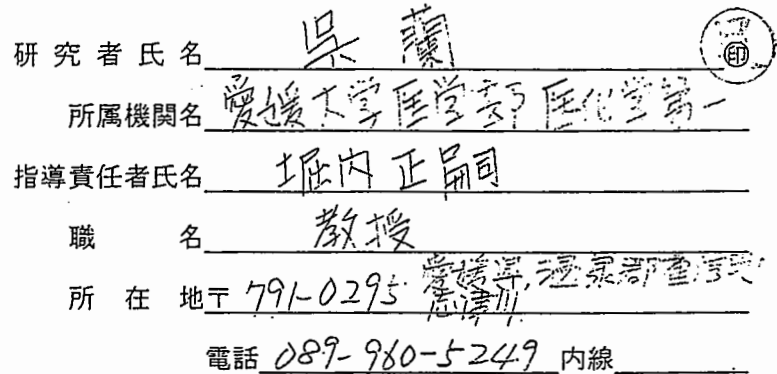 研究者氏名 呉 蘭 印
所属機関名 愛媛大学医学部医化学第一
指導責任者氏名 堀内 正嗣
職名 教授
所在地〒 791-0295 愛媛県,温泉郡重信町
志津川
電話 089-960-5249 内線